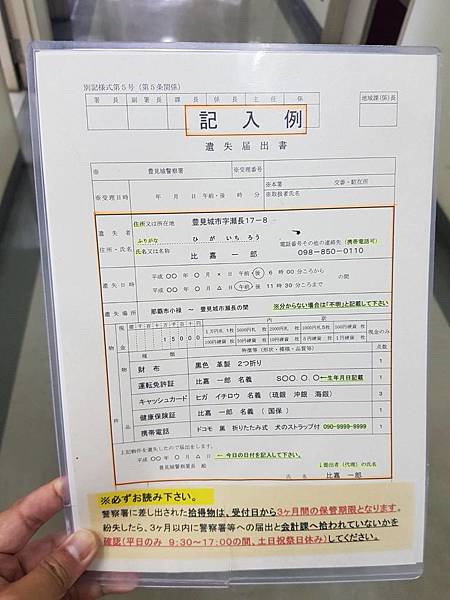 別記様式第5号（第5条関係）
署長 副署長 課長 係長 主任 係
地域課(係)長
記入例
遺失届出書
※ 豊見城警察署 ※受理番号
※受理日時 年 月 日 午前・後 時 分
※本署 交番・駐在所
※取扱者氏名
遺失者 住所・氏名
住所又は所在地 豊見城市字瀬長17－8
ふりがな ひが いちろう
氏名又は名称 比嘉 一郎
電話番号その他の連絡先 (携帯電話可)
098-850-0110
遺失日時
平成 〇〇 年 〇 月 × 日 午前・後 6 時 00 分ころから
平成 〇〇 年 〇 月 △ 日 午前・後 11 時 30 分ころまで
の間
遺失場所 那覇市小禄 ～ 豊見城市瀬長の間 ※分からない場合は「不明」と記載して下さい
物件
現金
15000
内訳
現金のみ
種類 特徴等（形状・模様・品質等） 点数
財布 黒色 革製 2つ折り 1
運転免許証 比嘉 一郎 名義 S〇〇. 〇. 〇 ←生年月日記載 1
キャッシュカード ヒガ イチロウ 名義（琉銀 沖銀 海銀） 3
健康保険証 比嘉 一郎 名義（ 国保 ） 1
携帯電話 ドコモ 黒 折りたたみ式 犬のストラップ付 090-9999-9999 1
上記物件を遺失したので届出をします。
平成 〇〇 年 〇 月 △ 日 ←今日の日付を記入して下さい。
豊見城警察署長 殿
↓提出者（代理）の氏名
氏名 比嘉 一郎
※必ずお読み下さい。
警察署に差し出された拾得物は、受付日から3ヶ月間の保管期限となります。
紛失したら、3ヶ月以内に警察署等への届出と会計課へ拾われていないかを
確認(平日のみ 9:30～17:00の間、土日祝祭日休み)してください。